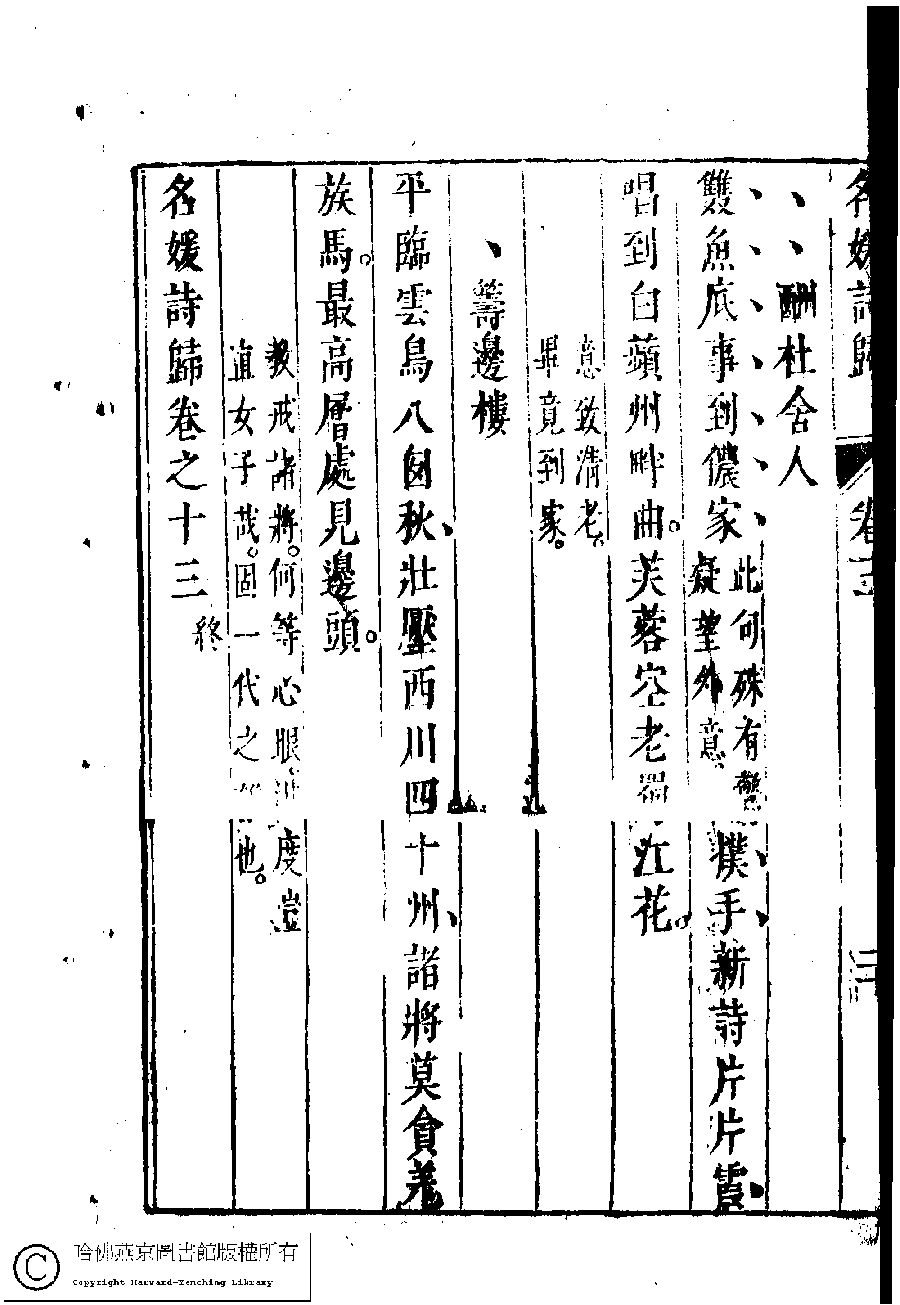 名媛詩歸 卷十三
酬杜舍人
雙魚底事到儂家此句殊有驚疑望外意撲手新詩片片霞
唱到白蘋州畔曲芙蓉空老蜀江花
意致清老
畢竟到家
籌邊樓
平臨雲鳥八囪秋壯壓西川四十州諸將莫貪羌
族馬最高層處見邊頭
教戒諸將何等心眼洪度豈
直女子哉固一代之也
名媛詩歸卷之十三 終
哈佛燕京圖書館版權所有
Copyright Harvard-Yenching Library